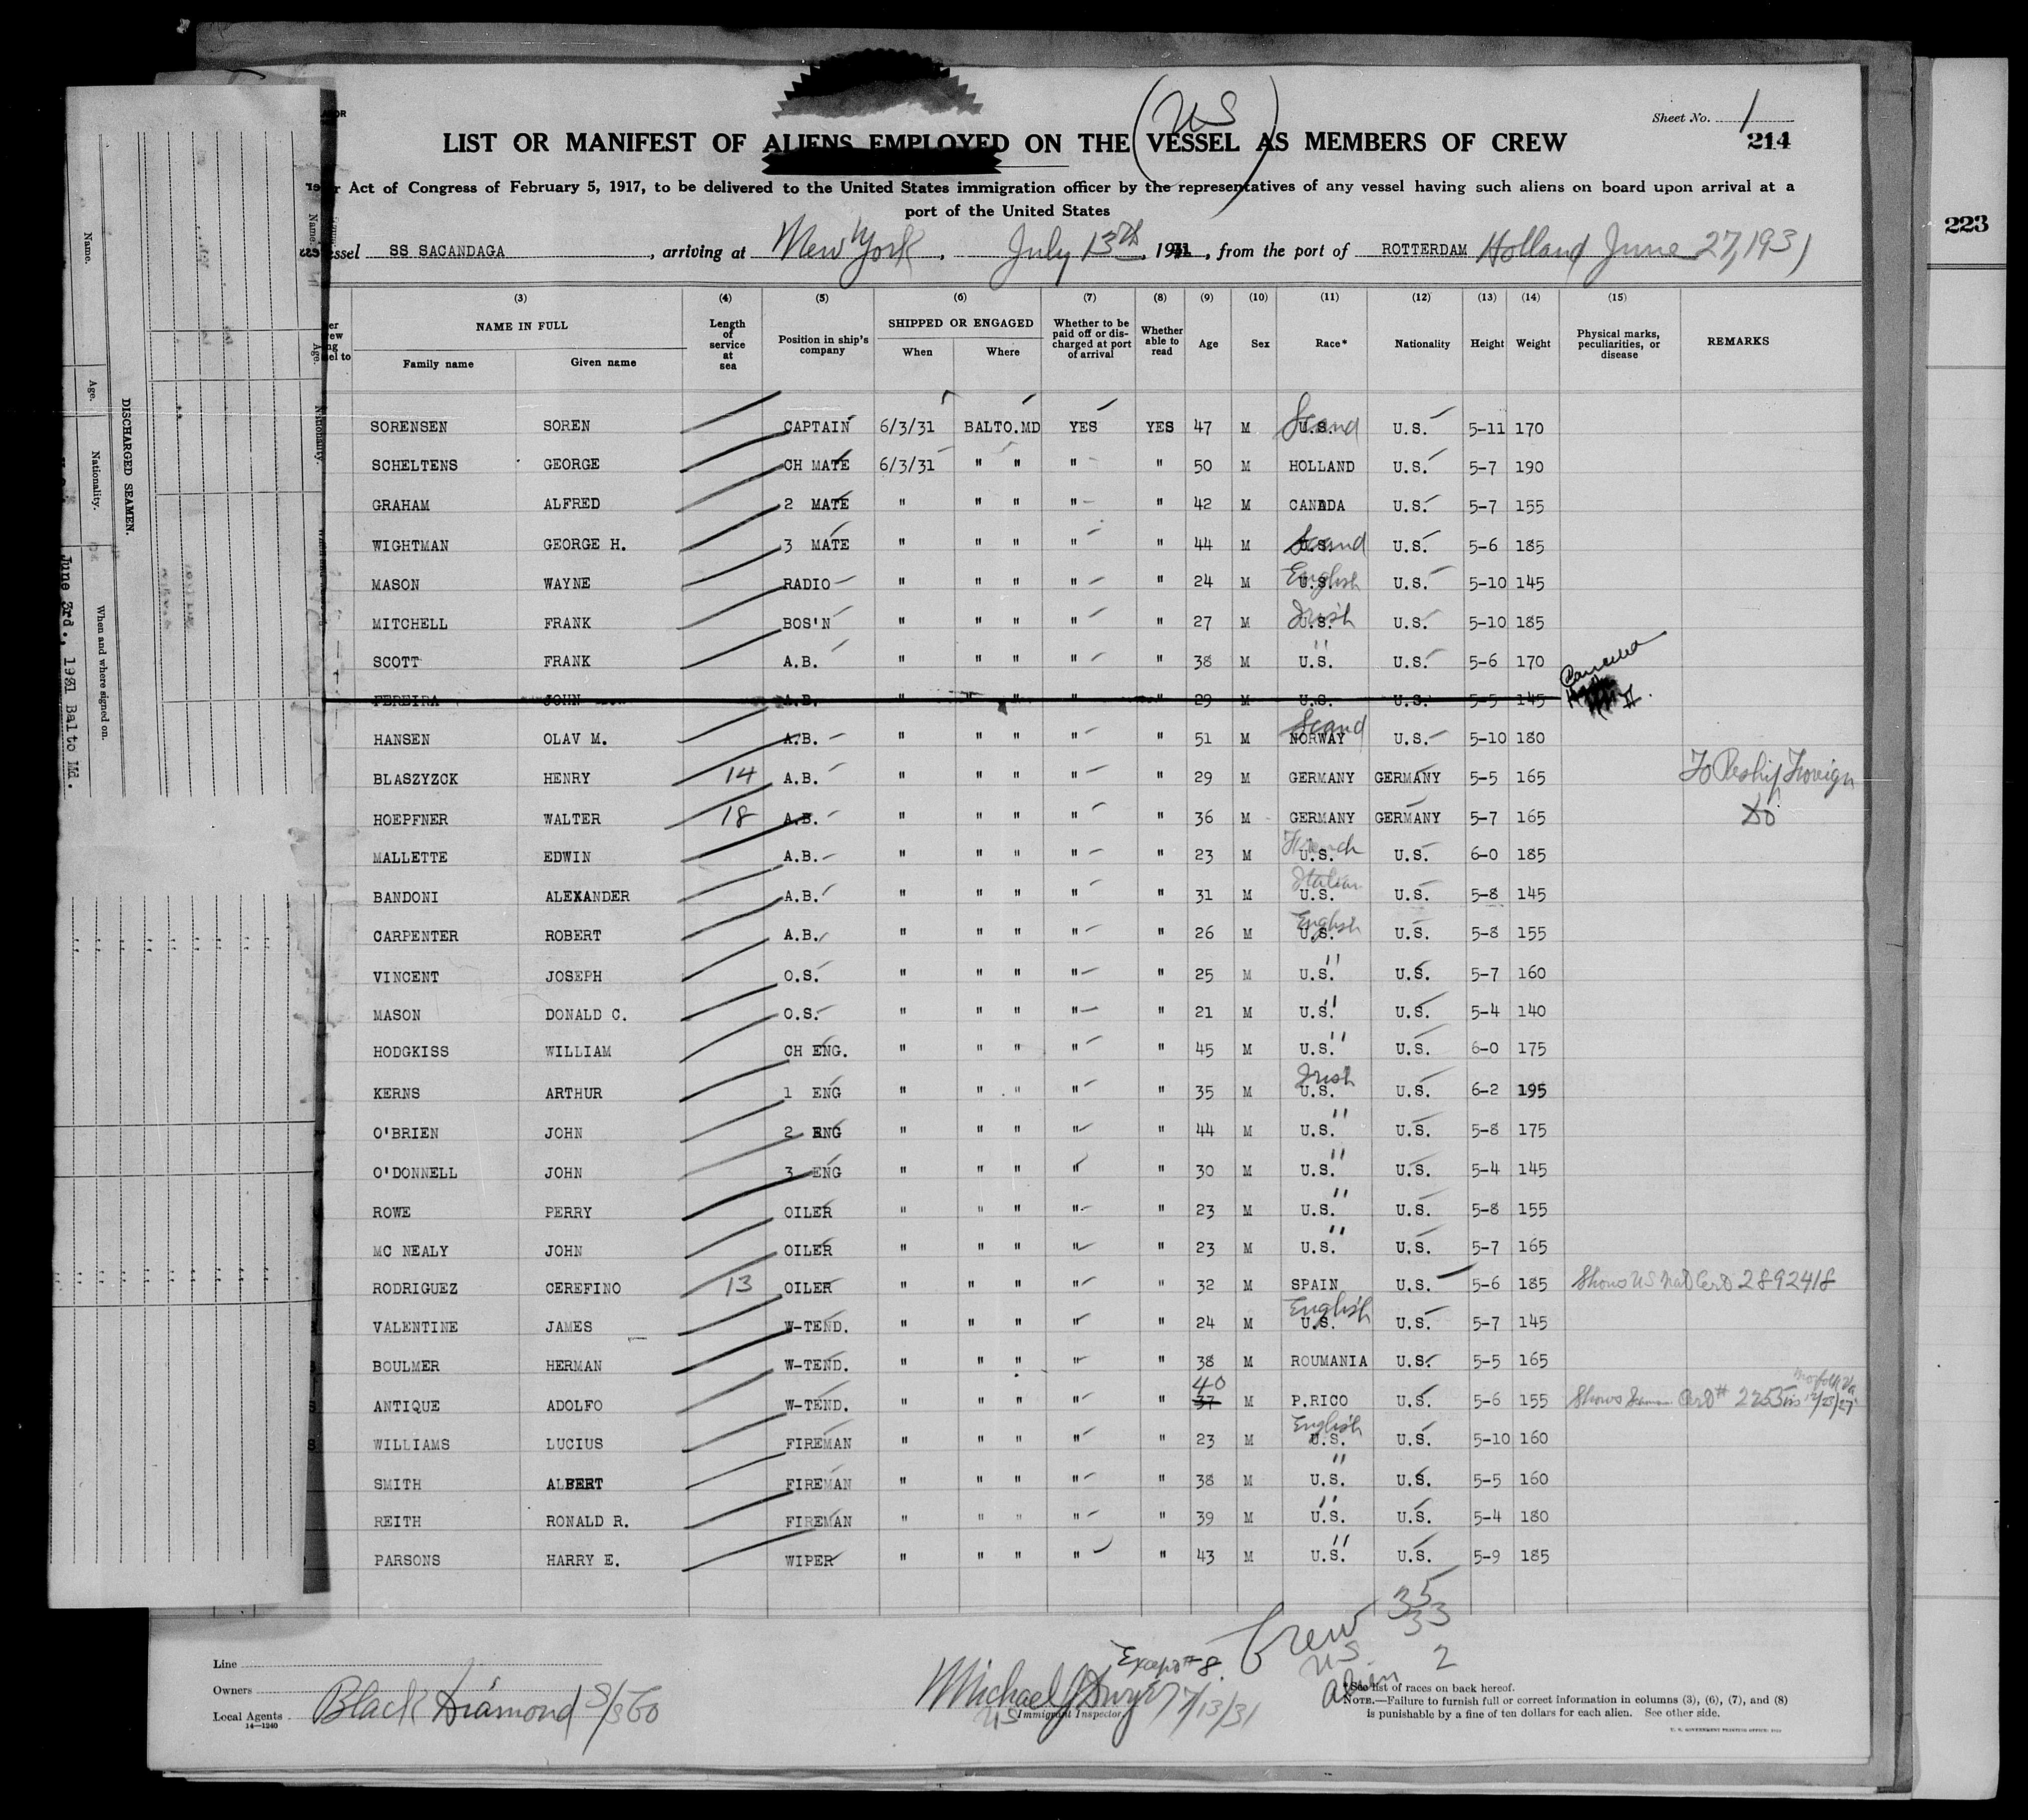 Sheet No. 1
214
LIST OR MANIFEST OF ALIENS EMPLOYED ON THE (US) VESSEL AS MEMBERS OF CREW
Act of Congress of February 5, 1917, to be delivered to the United States immigration officer by the representatives of any vessel having such aliens on board upon arrival at a
port of the United States
223
SS SACANDAGA, arriving at New York, July 13th, 1931, from the port of ROTTERDAM Holland June 27, 1931
(3) (4) (5) (6) (7) (8) (9) (10) (11) (12) (13) (14) (15)
NAME IN FULL Family name Given name Length of service at sea Position in ship's company SHIPPED OR ENGAGED When Where Whether to be paid off or discharged at port of arrival Whether able to read Age Sex Race* Nationality Height Weight Physical marks, peculiarities, or disease REMARKS
SORENSEN SOREN CAPTAIN 6/3/31 BALTO.MD YES YES 47 M U.S. Scand U.S. 5-11 170
SCHELTENS GEORGE CH MATE 6/3/31 " " " " 50 M HOLLAND U.S. 5-7 190
GRAHAM ALFRED 2 MATE " " " " " 42 M CANADA U.S. 5-7 155
WIGHTMAN GEORGE H. 3 MATE " " " " " 44 M U.S. Scand U.S. 5-6 185
MASON WAYNE RADIO " " " " " 24 M U.S. English U.S. 5-10 145
MITCHELL FRANK BOS'N " " " " " 27 M U.S. Irish U.S. 5-10 185
SCOTT FRANK A.B. " " " " " 38 M U.S. " U.S. 5-6 170
PEREIRA JOHN A.B. " " " " " 29 M U.S. U.S. 5-5 145
HANSEN OLAV M. A.B. " " " " " 51 M NORWAY Scand U.S. 5-10 180
BLASZYZCK HENRY 14 A.B. " " " " " 29 M GERMANY GERMANY 5-5 165 To Reship Foreign
HOEPFNER WALTER 18 A.B. " " " " " 36 M GERMANY GERMANY 5-7 165 Do
MALLETTE EDWIN A.B. " " " " " 23 M U.S. French U.S. 6-0 185
BANDONI ALEXANDER A.B. " " " " " 31 M U.S. Italian U.S. 5-8 145
CARPENTER ROBERT A.B. " " " " " 26 M U.S. English U.S. 5-8 155
VINCENT JOSEPH O.S. " " " " " 25 M U.S. " U.S. 5-7 160
MASON DONALD C. O.S. " " " " " 21 M U.S. " U.S. 5-4 140
HODGKISS WILLIAM CH ENG. " " " " " 45 M U.S. " U.S. 6-0 175
KERNS ARTHUR 1 ENG " " " " " 35 M U.S. Irish U.S. 6-2 195
O'BRIEN JOHN 2 ENG " " " " " 44 M U.S. " U.S. 5-8 175
O'DONNELL JOHN 3 ENG " " " " " 30 M U.S. " U.S. 5-4 145
ROWE PERRY OILER " " " " " 23 M U.S. " U.S. 5-8 155
MC NEALY JOHN OILER " " " " " 23 M U.S. " U.S. 5-7 165
RODRIGUEZ CEREFINO 13 OILER " " " " " 32 M SPAIN U.S. 5-6 185 Shows US Nat Cert 2892418
VALENTINE JAMES W-TEND. " " " " " 24 M U.S. English U.S. 5-7 145
BOULMER HERMAN W-TEND. " " " " " 38 M ROUMANIA U.S. 5-5 165
ANTIQUE ADOLFO W-TEND. " " " " " 37 40 M P.RICO U.S. 5-6 155 Shows Seaman Cert # 2255 iss 12/23/27 Norfolk Va
WILLIAMS LUCIUS FIREMAN " " " " " 23 M U.S. English U.S. 5-10 160
SMITH ALBERT FIREMAN " " " " " 38 M U.S. " U.S. 5-5 160
REITH RONALD R. FIREMAN " " " " " 39 M U.S. " U.S. 5-4 180
PARSONS HARRY E. WIPER " " " " " 43 M U.S. " U.S. 5-9 185
Crew 35
US 33
alien 2
Except # 8.
Line
Owners
Local Agents Black Diamond S/S Co
14—1240
Michael J Dwyer 7/13/31
US Immigrant Inspector.
* See list of races on back hereof.
NOTE.—Failure to furnish full or correct information in columns (3), (6), (7), and (8)
is punishable by a fine of ten dollars for each alien. See other side.
U. S. GOVERNMENT PRINTING OFFICE
DISCHARGED SEAMEN.
Name. Age. Nationality. When and where signed on.
June 3rd., 1931 Balto Md.